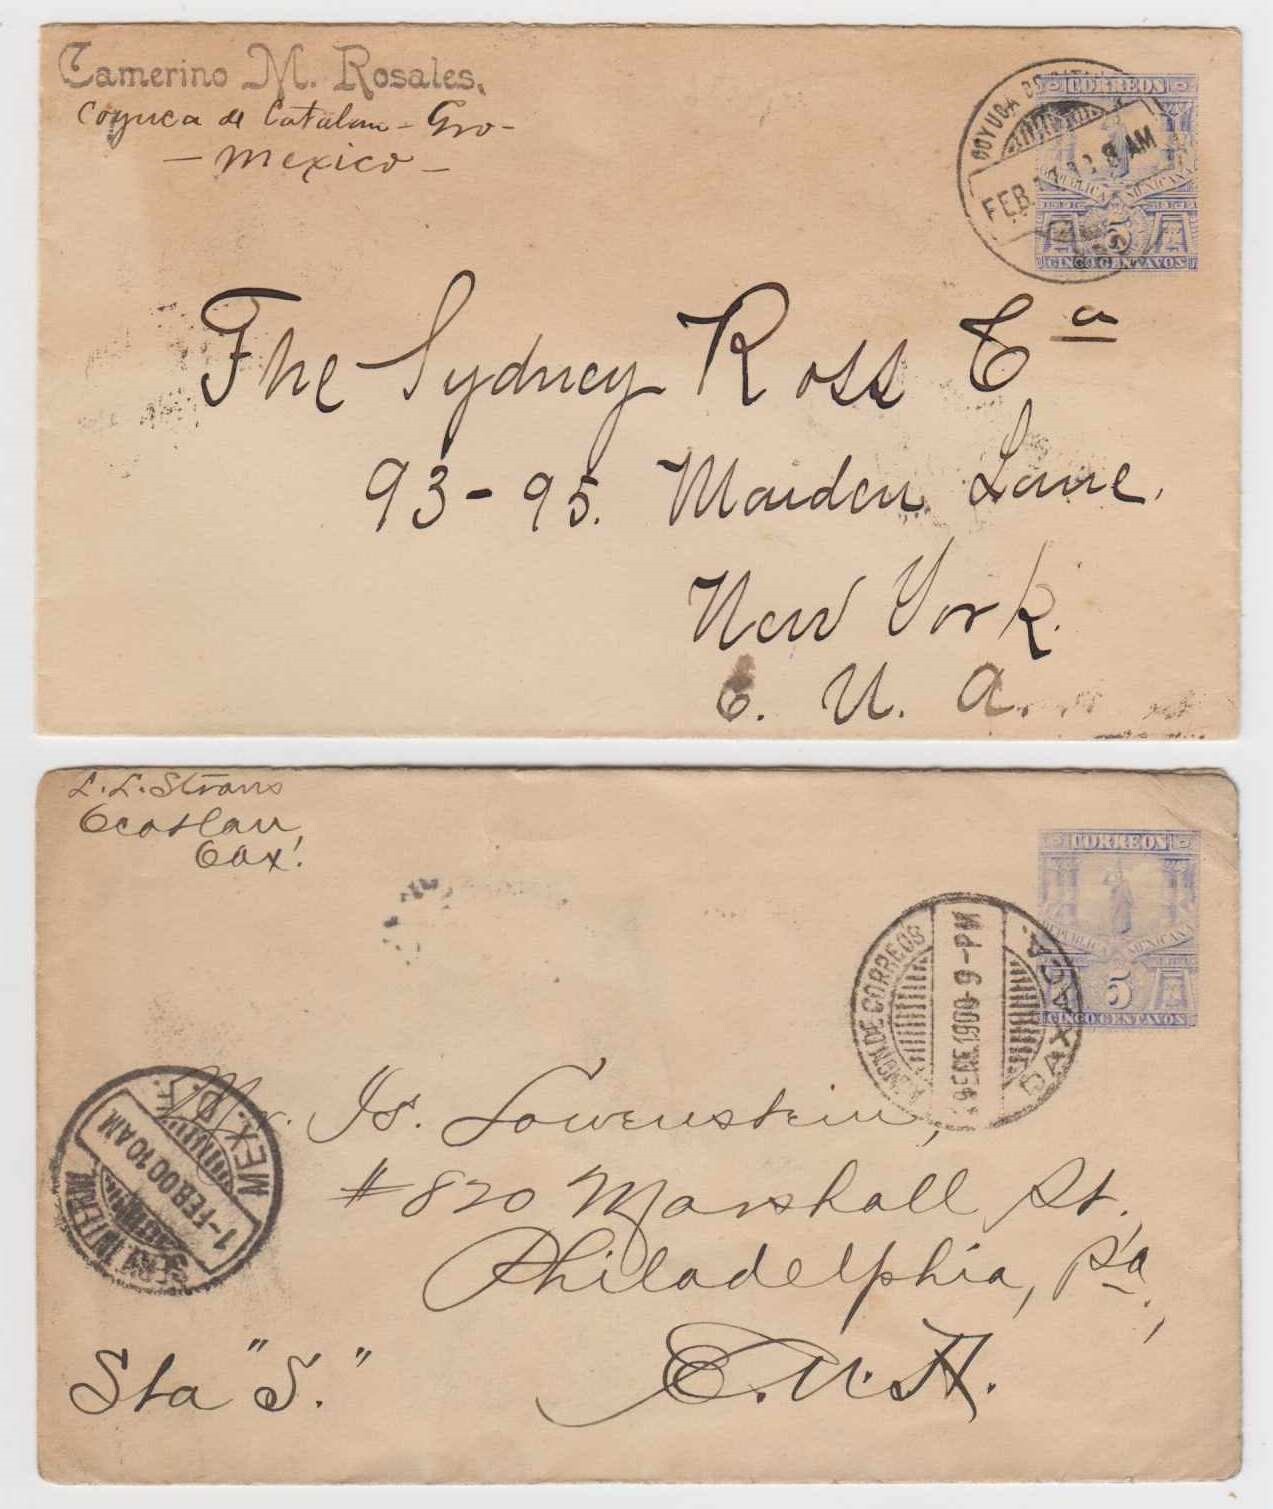 Camerino M. Rosales.
Coyuca de Catalan - Gro -
- Mexico -
COYUCA DE
FEB. 8 AM
CORREOS
REPUBLICA MEXICANA
5
CINCO CENTAVOS
The Sydney Ross Cª
93-95. Maiden Lane.
New York.
E. U. A.
L. L. Straus
Ocotlan,
Oax.
CORREOS
REPUBLICA MEXICANA
5
CINCO CENTAVOS
ADMON DE CORREOS
ENE. 1900 - 9 - PM
OAXACA.
Mr. Is. Lowenstein,
# 820 Marshall St.,
Philadelphia, Pa.,
E. U. A.
MEX. D. F.
1 - FEB 00 10 AM
Sta "S."